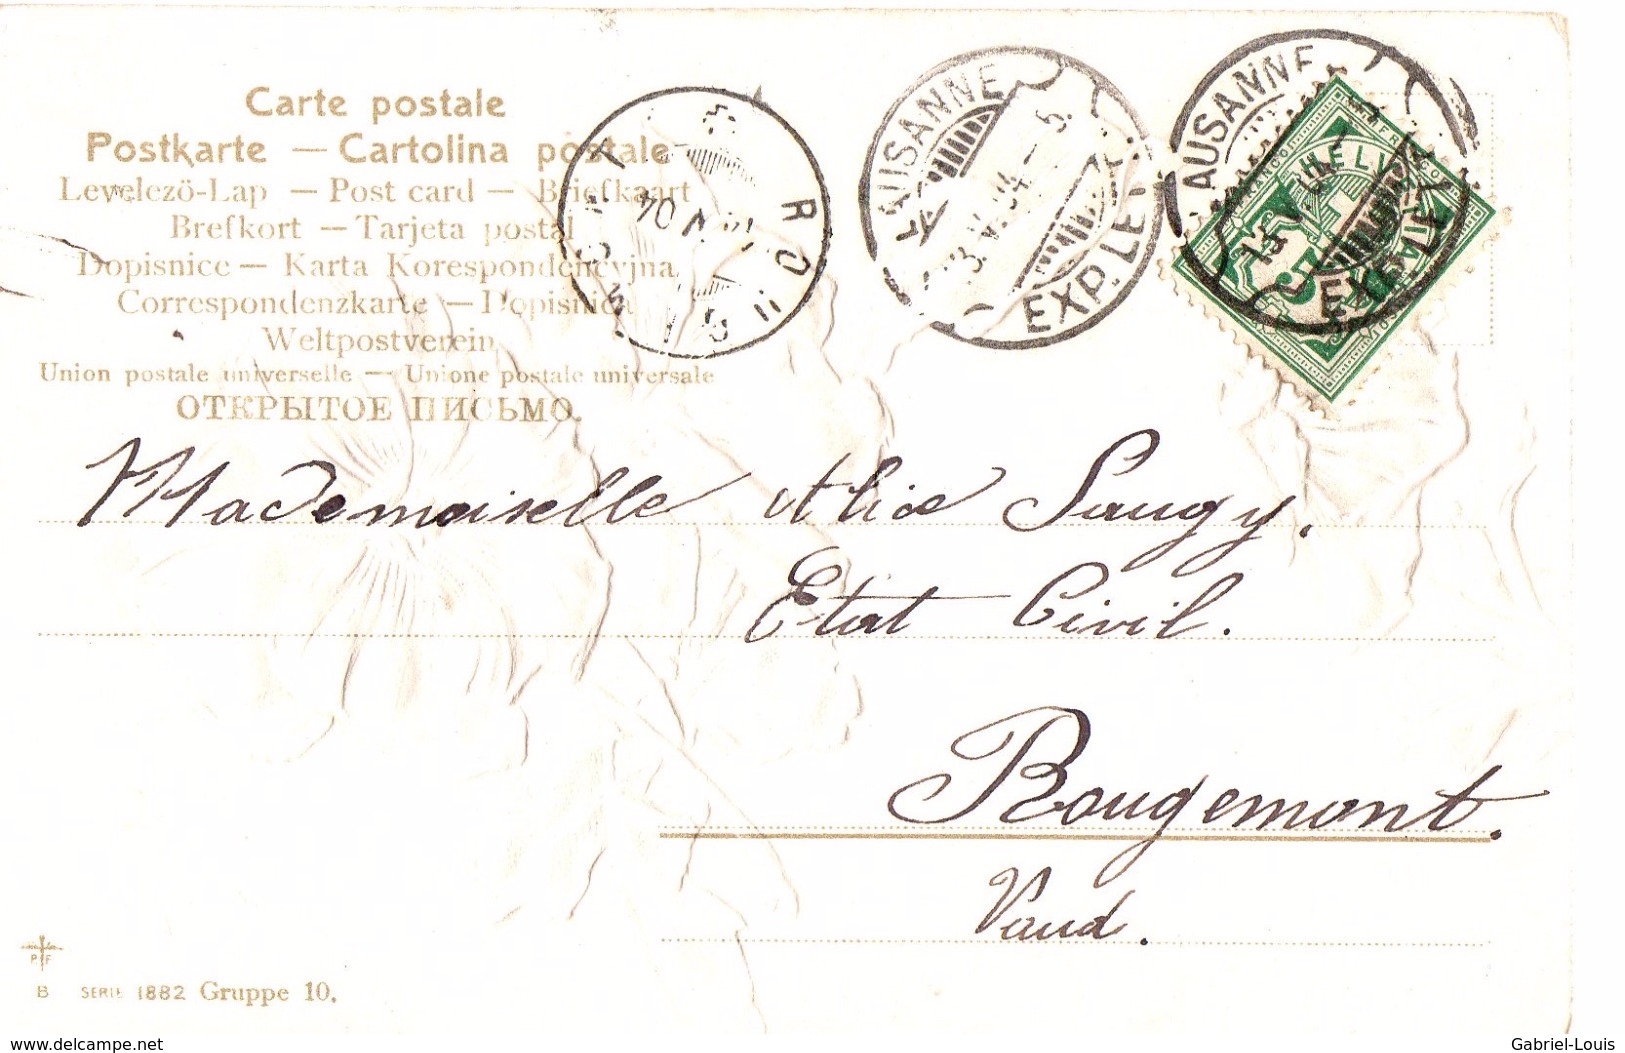 Carte postale
Postkarte — Cartolina postale
Levelező-Lap — Post card — Briefkaart
Brefkort — Tarjeta postal
Dopisnice — Karta Korespondencyjna
Correspondenzkarte — Dopisnica
Weltpostverein
Union postale universelle — Unione postale universale
ОТКРЫТОЕ ПИСЬМО.
LAUSANNE
EXP. LET.
LAUSANNE
EXP. LET.
HELVETIA
FRANCO
5
04
Mademoiselle Alice Saugy.
Etat Civil.
Rougemont.
Vaud.
P F
B SERIE 1882 Gruppe 10.
www.delcampe.net
Gabriel-Louis